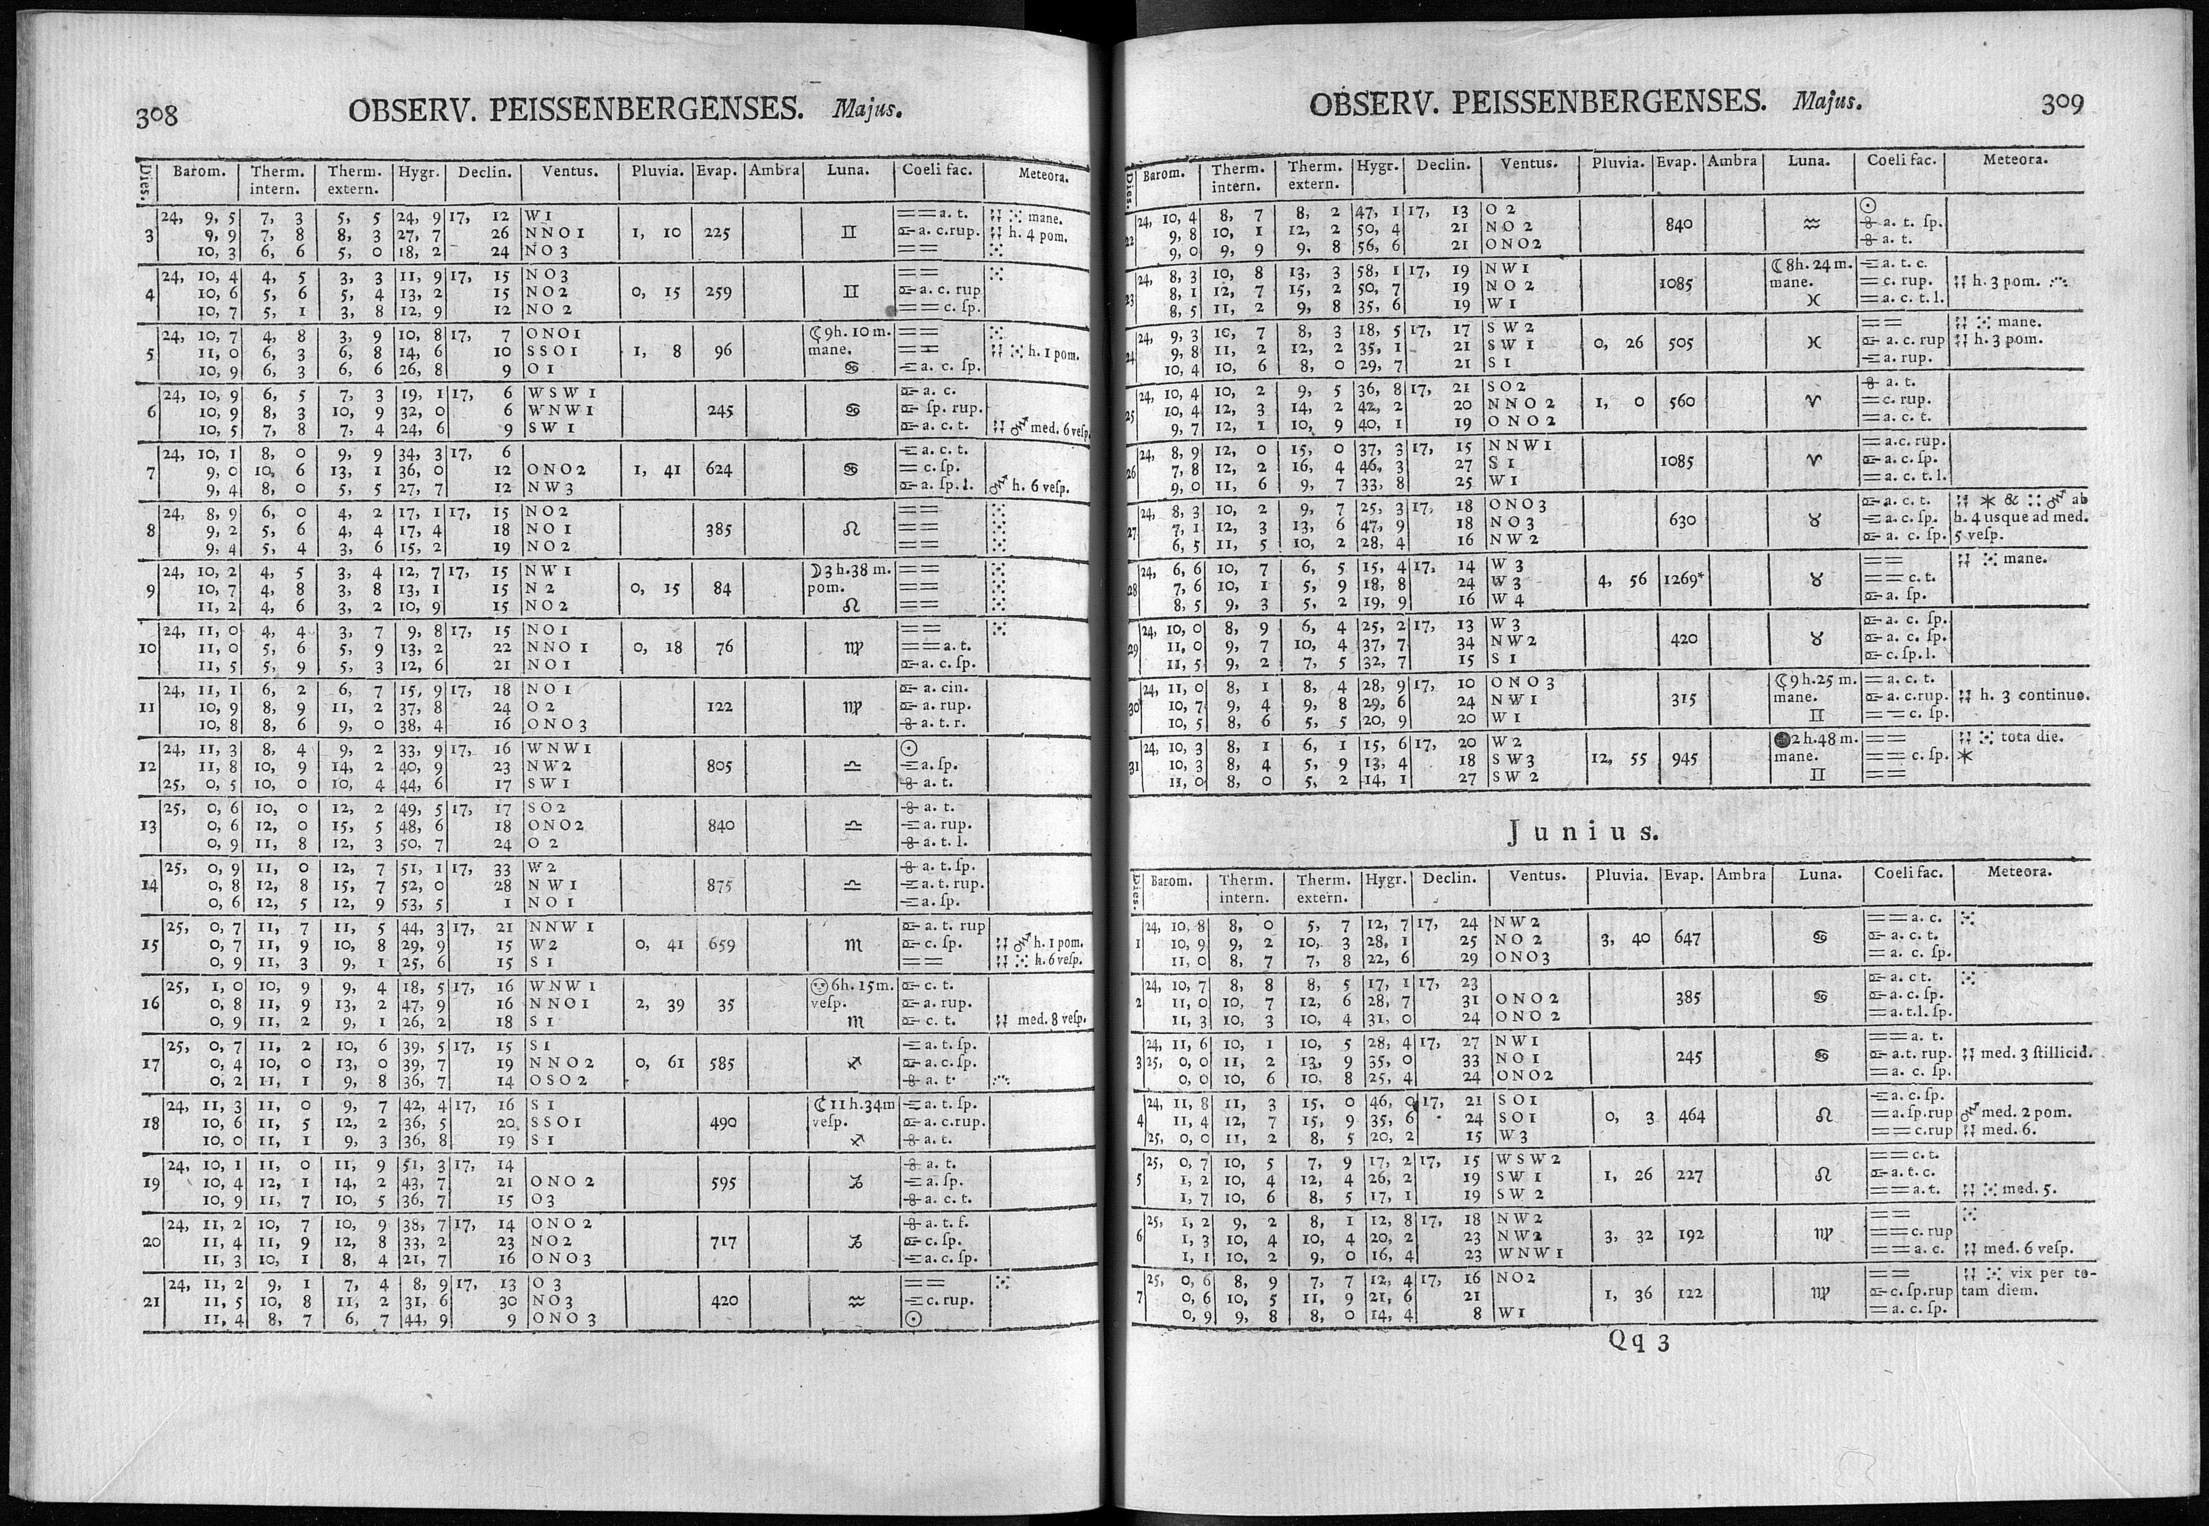 308 OBSERV. PEISSENBERGENSES. Majus.
Dies. Barom. Therm. intern. Therm. extern. Hygr. Declin. Ventus. Pluvia. Evap. Ambra Luna. Coeli fac. Meteora.
24, 9, 5 7, 3 5, 5 24, 9 17, 12 W 1 == a. t. mane.
3 9, 9 7, 8 8, 3 27, 7 26 NNO 1 1, 10 225 ♊ a. c. rup. h. 4 pom.
10, 3 6, 6 5, 0 18, 2 24 NO 3 ==
24, 10, 4 4, 5 3, 3 11, 9 17, 15 NO 3 ==
4 10, 6 5, 6 5, 4 13, 2 15 NO 2 0, 15 259 ♊ a. c. rup
10, 7 5, 1 3, 8 12, 9 12 NO 2 == c. ſp.
24, 10, 7 4, 8 3, 9 10, 8 17, 7 ONO 1 ☾9h. 10 m. ==
5 11, 0 6, 3 6, 8 14, 6 10 SSO 1 1, 8 96 mane. == h. 1 pom.
10, 9 6, 3 6, 6 26, 8 9 O 1 ♋ a. c. ſp.
24, 10, 9 6, 5 7, 3 19, 1 17, 6 WSW 1 a. c.
6 10, 9 8, 3 10, 9 32, 0 6 WNW 1 245 ♋ ſp. rup.
10, 5 7, 8 7, 4 24, 6 9 SW 1 a. c. t. med. 6 veſp.
24, 10, 1 8, 0 9, 9 34, 3 17, 6 a. c. t.
7 9, 0 10, 6 13, 1 36, 0 12 ONO 2 1, 41 624 ♋ = c. ſp.
9, 4 8, 0 5, 5 27, 7 12 NW 3 a. ſp. l. h. 6 veſp.
24, 8, 9 6, 0 4, 2 17, 1 17, 15 NO 2 ==
8 9, 2 5, 6 4, 4 17, 4 18 NO 1 385 ♌ ==
9, 4 5, 4 3, 6 15, 2 19 NO 2 ==
24, 10, 2 4, 5 3, 4 12, 7 17, 15 NW 1 ☽3 h. 38 m. ==
9 10, 7 4, 8 3, 8 13, 1 15 N 2 0, 15 84 pom. ==
11, 2 4, 6 3, 2 10, 9 15 NO 2 ♌ ==
24, 11, 0 4, 4 3, 7 9, 8 17, 15 NO 1 ==
10 11, 0 5, 6 5, 9 13, 2 22 NNO 1 0, 18 76 ♍ == a. t.
11, 5 5, 9 5, 3 12, 6 21 NO 1 a. c. ſp.
24, 11, 1 6, 2 6, 7 15, 9 17, 18 NO 1 a. cin.
11 10, 9 8, 9 11, 2 37, 8 24 O 2 122 ♍ a. rup.
10, 8 8, 6 9, 0 38, 4 16 ONO 3 a. t. r.
24, 11, 3 8, 4 9, 2 33, 9 17, 16 WNW 1 ☉
12 11, 8 10, 9 14, 2 40, 9 23 NW 2 805 ♎ a. ſp.
25, 0, 5 10, 0 10, 4 44, 6 17 SW 1 a. t.
25, 0, 6 10, 0 12, 2 49, 5 17, 17 SO 2 a. t.
13 0, 6 12, 0 15, 5 48, 6 18 ONO 2 840 ♎ a. rup.
0, 9 11, 8 12, 3 50, 7 24 O 2 a. t. l.
25, 0, 9 11, 0 12, 7 51, 1 17, 33 W 2 a. t. ſp.
14 0, 8 12, 8 15, 7 52, 0 28 NW 1 875 ♎ a. t. rup.
0, 6 12, 5 12, 9 53, 5 1 NO 1 a. ſp.
25, 0, 7 11, 7 11, 5 44, 3 17, 21 NNW 1 a. t. rup
15 0, 7 11, 9 10, 8 29, 9 15 W 2 0, 41 659 ♏ c. ſp. h. 1 pom.
0, 9 11, 3 9, 1 25, 6 15 S 1 == h. 6 veſp.
25, 1, 0 10, 9 9, 4 18, 5 17, 16 WNW 1 6h. 15m. c. t.
16 0, 8 11, 9 13, 2 47, 9 16 NNO 1 2, 39 35 veſp. a. rup.
0, 9 11, 2 9, 1 26, 2 18 S 1 ♏ c. t. med. 8 veſp.
25, 0, 7 11, 2 10, 6 39, 5 17, 15 S 1 a. t. ſp.
17 0, 4 10, 0 13, 0 39, 7 19 NNO 2 0, 61 585 ♐ a. c. ſp.
0, 2 11, 1 9, 8 36, 7 14 OSO 2 a. t.
24, 11, 3 11, 0 9, 7 42, 4 17, 16 S 1 ☾11 h. 34m a. t. ſp.
18 10, 6 11, 5 12, 2 36, 5 20 SSO 1 490 veſp. a. c. rup.
10, 0 11, 1 9, 3 36, 8 19 S 1 ♐ a. t.
24, 10, 1 11, 0 11, 9 51, 3 17, 14 a. t.
19 10, 4 12, 1 14, 2 43, 7 21 ONO 2 595 ♑ a. ſp.
10, 9 11, 7 10, 5 36, 7 15 O 3 a. c. t.
24, 11, 2 10, 7 10, 9 38, 7 17, 14 ONO 2 a. t. f.
20 11, 4 11, 9 12, 8 33, 2 23 NO 2 717 ♑ c. ſp.
11, 3 10, 1 8, 4 21, 7 16 ONO 3 a. c. ſp.
24, 11, 2 9, 1 7, 4 8, 9 17, 13 O 3 ==
21 11, 5 10, 8 11, 2 31, 6 30 NO 3 420 ♒ c. rup.
11, 4 8, 7 6, 7 44, 9 9 ONO 3 ☉
OBSERV. PEISSENBERGENSES. Majus. 309
Dies. Barom. Therm. intern. Therm. extern. Hygr. Declin. Ventus. Pluvia. Evap. Ambra Luna. Coeli fac. Meteora.
24, 10, 4 8, 7 8, 2 47, 1 17, 13 O 2 ☉
22 9, 8 10, 1 12, 2 50, 4 21 NO 2 840 ♒ a. t. ſp.
9, 0 9, 9 9, 8 56, 6 21 ONO 2 a. t.
24, 8, 3 10, 8 13, 3 58, 1 17, 19 NW 1 ☾8h. 24 m. a. t. c.
23 8, 1 12, 7 15, 2 50, 7 19 NO 2 1085 mane. = c. rup. h. 3 pom.
8, 5 11, 2 9, 8 35, 6 19 W 1 ♓ = a. c. t. l.
24, 9, 3 10, 7 8, 3 18, 5 17, 17 SW 2 == mane.
24 9, 8 11, 2 12, 2 35, 1 21 SW 1 0, 26 505 ♓ a. c. rup h. 3 pom.
10, 4 10, 6 8, 0 29, 7 21 S 1 a. rup.
24, 10, 4 10, 2 9, 5 36, 8 17, 21 SO 2 a. t.
25 10, 4 12, 3 14, 2 42, 2 20 NNO 2 1, 0 560 ♈ = c. rup.
9, 7 12, 1 10, 9 40, 1 19 ONO 2 = a. c. t.
24, 8, 9 12, 0 15, 0 37, 3 17, 15 NNW 1 = a.c. rup.
26 7, 8 12, 2 16, 4 46, 3 27 S 1 1085 ♈ a. c. ſp.
9, 0 11, 6 9, 7 33, 8 25 W 1 = a. c. t. l.
24, 8, 3 10, 2 9, 7 25, 3 17, 18 ONO 3 a. c. t. & ab
27 7, 1 12, 3 13, 6 47, 9 18 NO 3 630 ♉ a. c. ſp. h. 4 usque ad med.
6, 5 11, 5 10, 2 28, 4 16 NW 2 a. c. ſp. 5 veſp.
24, 6, 6 10, 7 6, 5 15, 4 17, 14 W 3 == mane.
28 7, 6 10, 1 5, 9 18, 8 24 W 3 4, 56 1269* ♉ == c. t.
8, 5 9, 3 5, 2 19, 9 16 W 4 a. ſp.
24, 10, 0 8, 9 6, 4 25, 2 17, 13 W 3 a. c. ſp.
29 11, 0 9, 7 10, 4 37, 7 34 NW 2 420 ♉ a. c. ſp.
11, 5 9, 2 7, 5 32, 7 15 S 1 c. ſp. l.
24, 11, 0 8, 1 8, 4 28, 9 17, 10 ONO 3 ☾9 h. 25 m. = a. c. t.
30 10, 7 9, 4 9, 8 29, 6 24 NW 1 315 mane. a. c. rup. h. 3 continuo.
10, 5 8, 6 5, 5 20, 9 20 W 1 ♊ == c. ſp.
24, 10, 3 8, 1 6, 1 15, 6 17, 20 W 2 2 h. 48 m. == tota die.
31 10, 3 8, 4 5, 9 13, 4 18 SW 3 12, 55 945 mane. == c. ſp. *
11, 0 8, 0 5, 2 14, 1 27 SW 2 ♊ ==
Junius.
Dies. Barom. Therm. intern. Therm. extern. Hygr. Declin. Ventus. Pluvia. Evap. Ambra Luna. Coeli fac. Meteora.
24, 10, 8 8, 0 5, 7 12, 7 17, 24 NW 2 == a. c.
1 10, 9 9, 2 10, 3 28, 1 25 NO 2 3, 40 647 ♋ a. c. t.
11, 0 8, 7 7, 8 22, 6 29 ONO 3 = a. c. ſp.
24, 10, 7 8, 8 8, 5 17, 1 17, 23 a. c t.
2 11, 0 10, 7 12, 6 28, 7 31 ONO 2 385 ♋ a. c. ſp.
11, 3 10, 3 10, 4 31, 0 24 ONO 2 = a. t.l. ſp.
24, 11, 6 10, 1 10, 5 28, 4 17, 27 NW 1 == a. t.
3 25, 0, 0 11, 2 13, 9 35, 0 33 NO 1 245 ♋ a.t. rup. med. 3 ſtillicid.
0, 0 10, 6 10, 8 25, 4 24 ONO 2 = a. c. ſp.
24, 11, 8 11, 3 15, 0 46, 0 17, 21 SO 1 a. c. ſp.
4 11, 4 12, 7 15, 9 35, 6 24 SO 1 0, 3 464 ♌ = a. ſp. rup med. 2 pom.
25, 0, 0 11, 2 8, 5 20, 2 15 W 3 == c. rup med. 6.
25, 0, 7 10, 5 7, 9 17, 2 17, 15 WSW 2 == c. t.
5 1, 2 10, 4 12, 4 26, 2 19 SW 1 1, 26 227 ♌ a. t. c.
1, 7 10, 6 8, 5 17, 1 19 SW 2 == a. t. med. 5.
25, 1, 2 9, 2 8, 1 12, 8 17, 18 NW 2 ==
6 1, 3 10, 4 10, 4 20, 2 23 NW 2 3, 32 192 ♍ == c. rup
1, 1 10, 2 9, 0 16, 4 23 WNW 1 == a. c. med. 6 veſp.
25, 0, 6 8, 9 7, 7 12, 4 17, 16 NO 2 == vix per to-
7 0, 6 10, 5 11, 9 21, 6 21 1, 36 122 ♍ c. ſp. rup tam diem.
0, 9 9, 8 8, 0 14, 4 8 W 1 = a. c. ſp.
Qq 3